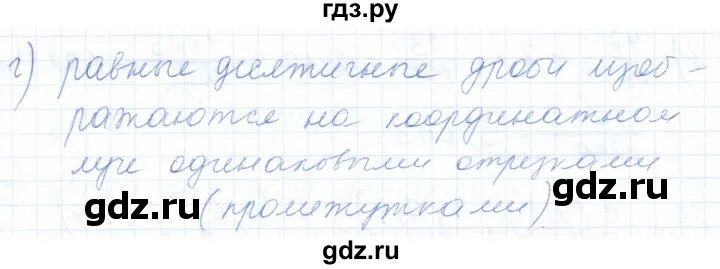 гдз.ру
г) равные десятичные дроби изоб-
ражаются на координатном
луче одинаковыми отрезками
gdz.ru gdz.ru
(промежутками)
gdz.ru